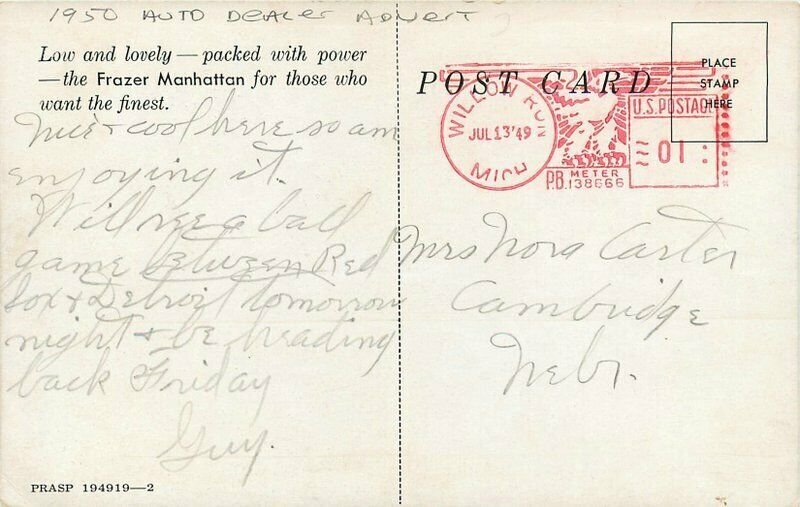 1950 AUTO DEALER ADVERT
Low and lovely — packed with power
— the Frazer Manhattan for those who
want the finest.
Nice & cool here so am
enjoying it.
Will see a ball
game between Red
Sox & Detroit tomorrow
night & be heading
back Friday
Guy.
PRASP 194919—2
POST CARD
PLACE
STAMP
HERE
WILLOW RUN
JUL 13 '49
MICH
U.S. POSTAGE
01
P.B. METER
138666
Mrs Nora Carter
Cambridge
Nebr.